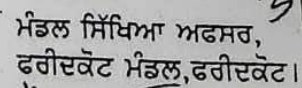 ਮੰਡਲ ਸਿੱਖਿਆ ਅਫਸਰ,
ਫਰੀਦਕੋਟ ਮੰਡਲ,ਫਰੀਦਕੋਟ।